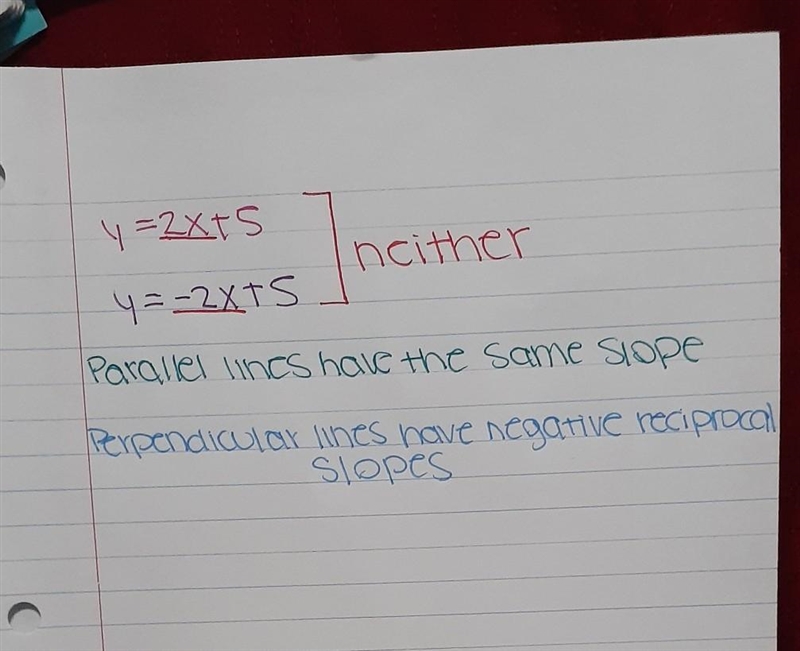 y = 2x + 5
neither
y = -2x + 5
Parallel lines have the same slope
Perpendicular lines have negative reciprocal
slopes